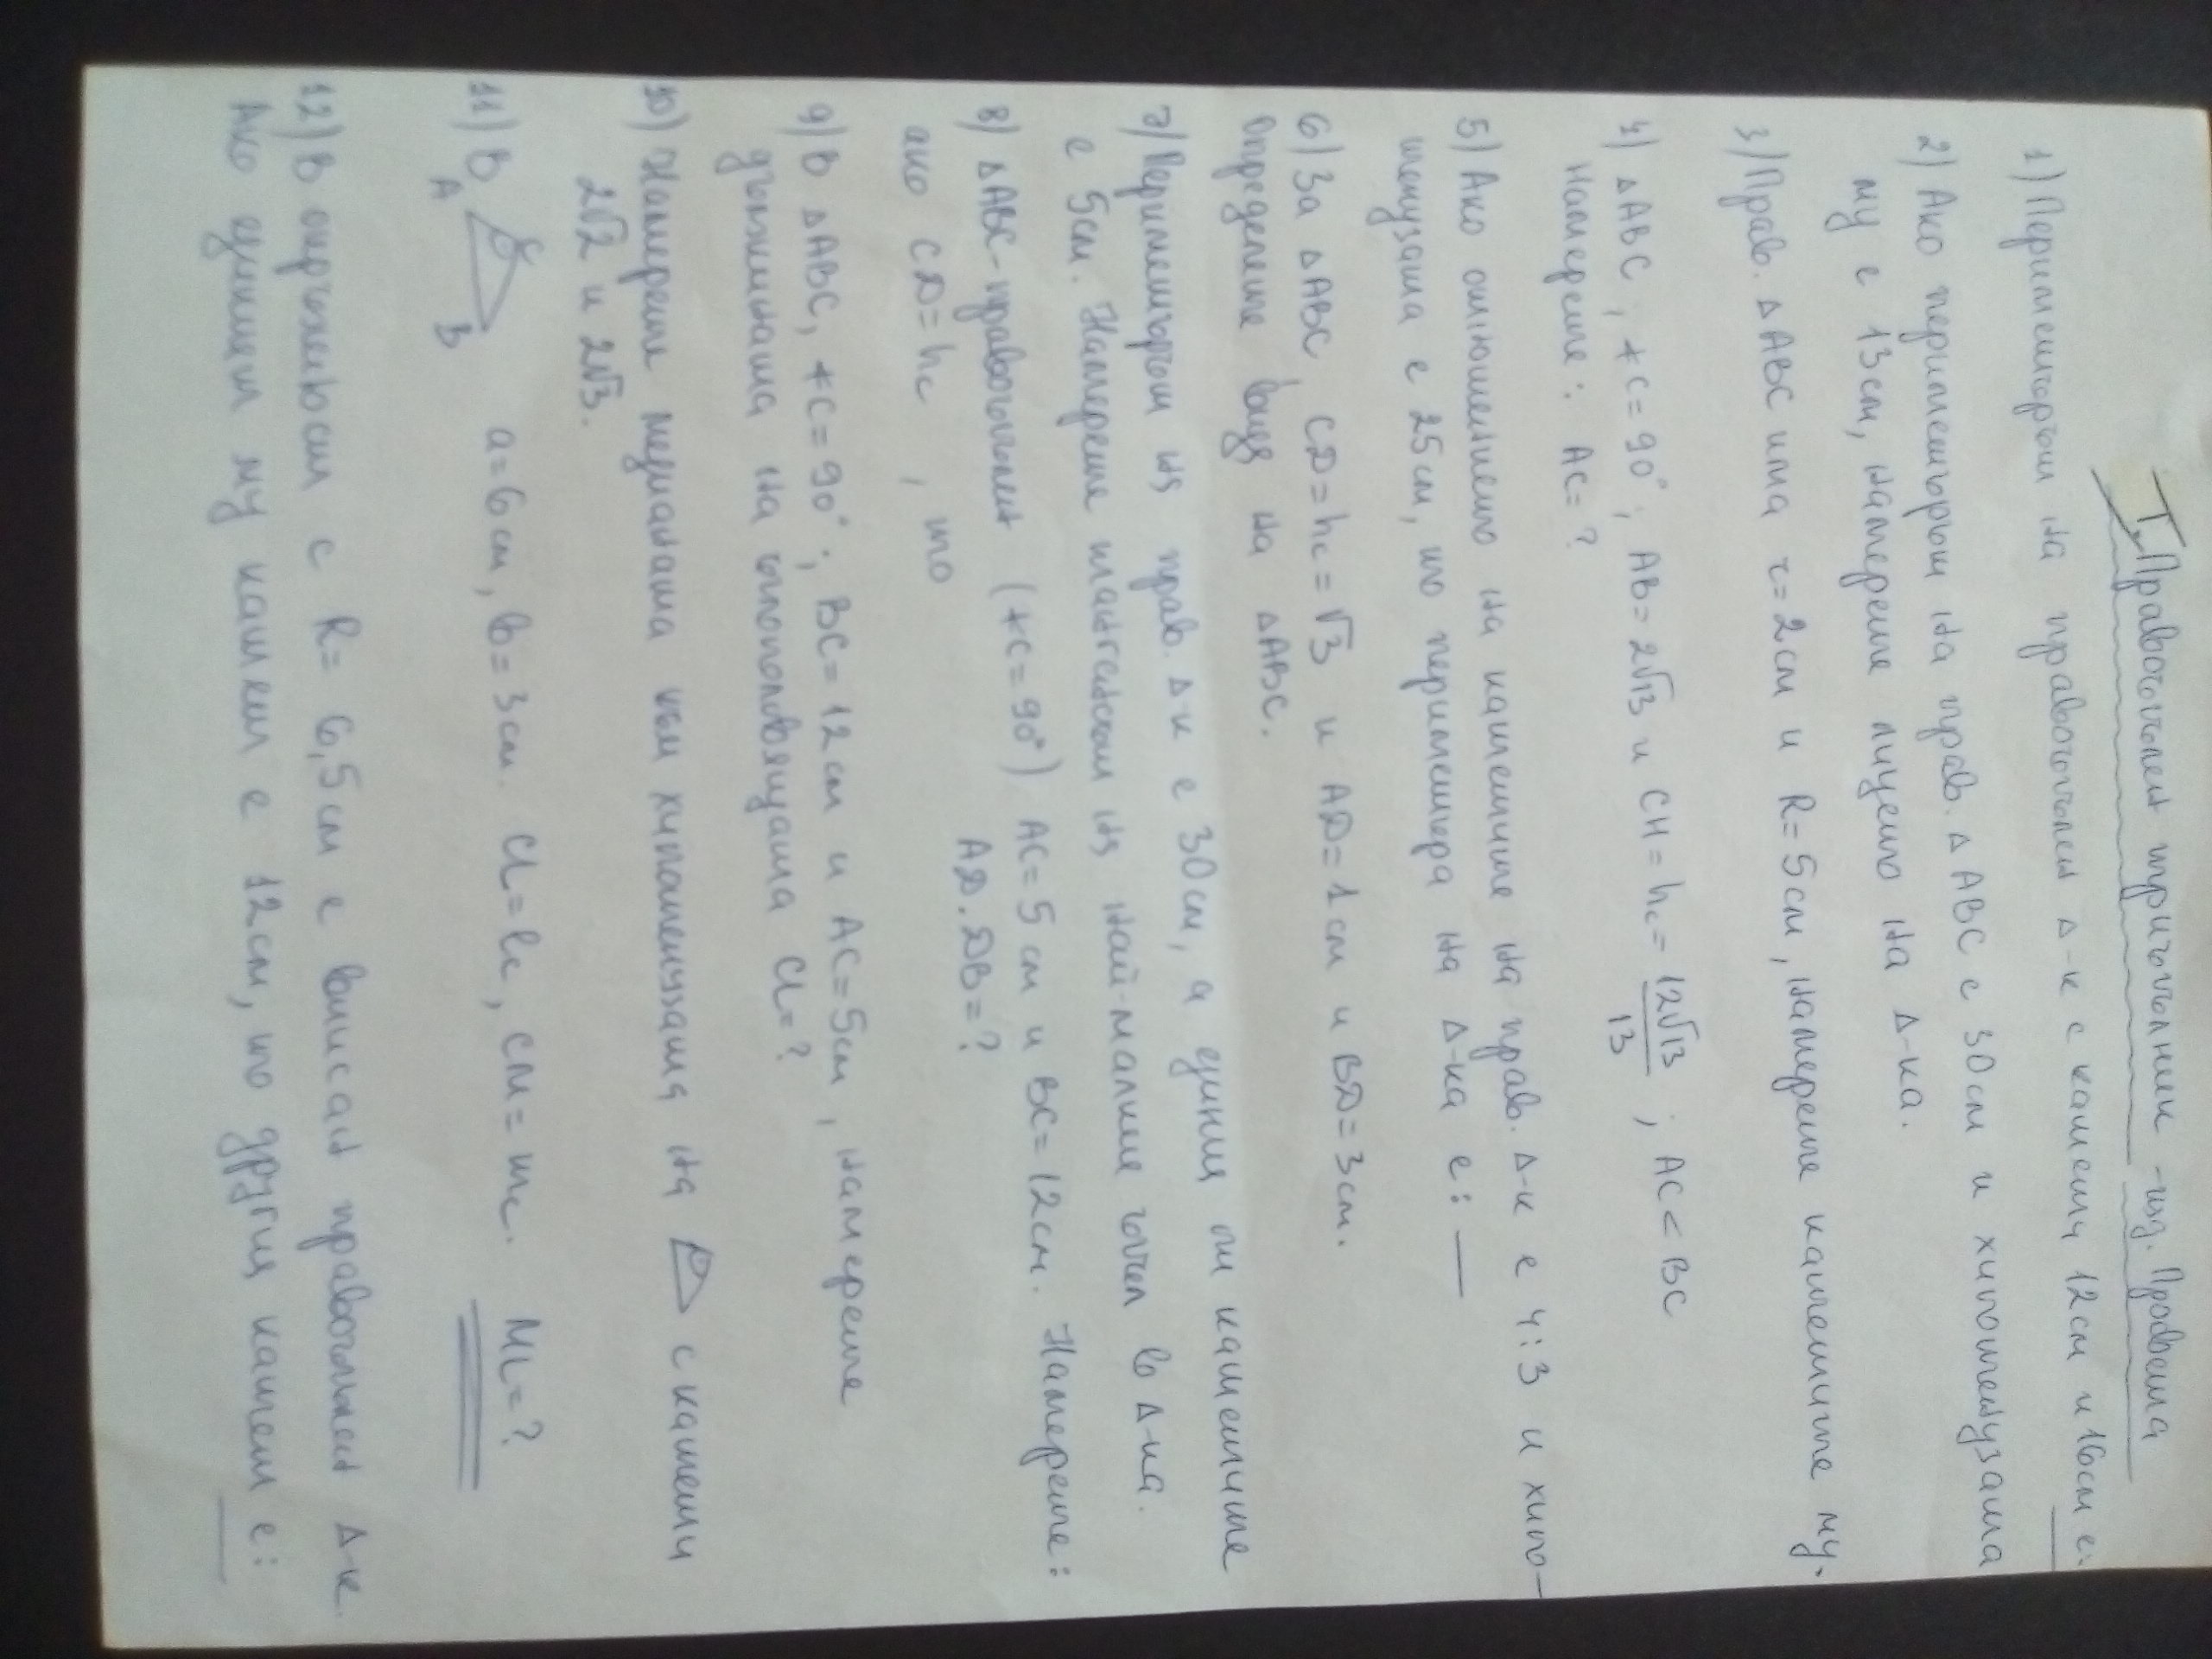 I. Правоъгълен триъгълник - изд. Просвета
1) Периметърът на правоъгълен Δ-к с катети 12см и 16см е:
2) Ако периметърът на прав. ΔABC е 30см и хипотенузата
му е 13см, намерете лицето на Δ-ка.
3) Прав. ΔABC има r=2см и R=5см, намерете катетите му.
4) ΔABC, ∢C=90°, AB=2√13 и CH=hc=12√13/13; AC<BC
Намерете: AC=?
5) Ако отношението на катетите на прав. Δ-к е 4:3 и хипо-
тенузата е 25см, то периметъра на Δ-ка е: —
6) За ΔABC, CD=hc=√3 и AD=1см и BD=3см.
Определете вида на ΔABC.
7) Периметърът на прав. Δ-к е 30см, а единия от катетите
е 5см. Намерете тангенсът на най-малкия ъгъл в Δ-ка.
8) ΔABC-правоъгълен (∢C=90°) AC=5см и BC=12см. Намерете:
ако CD=hc, то AD.DB=?
9) В ΔABC, ∢C=90°; BC=12см и AC=5см, намерете
дължината на ъглополовящата CL=?
10) Намерете медианата към хипотенузата на с катети
2√2 и 2√3.
11) В A B C a=6см, b=3см. CL=lc, CM=mc. ML=?
12) В окръжност с R=6,5см е вписан правоъгълен Δ-к.
Ако единият му катет е 12см, то другия катет е: